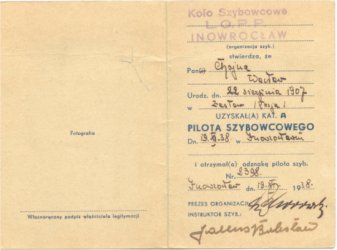 Fotografia
Własnoręczny podpis właściciela legitymacji
Koło Szybowcowe
L.O.P.P.
INOWROCŁAW
(organizacja szyb.)
stwierdza, że
Pan(i) Chojna
Wacław
Urodz. dn. 22 sierpnia 1907
w Zasław (Rosja)
UZYSKAŁ(A) KAT. A
PILOTA SZYBOWCOWEGO
Dn. 19.VI.38 w Inowrocławiu
i otrzymał(a) odznakę pilota szyb.
Nr. 2398.
Inowrocław dn. 19.VI 1938.
PREZES ORGANIZACJI
INSTRUKTOR SZYB.
Bolesław